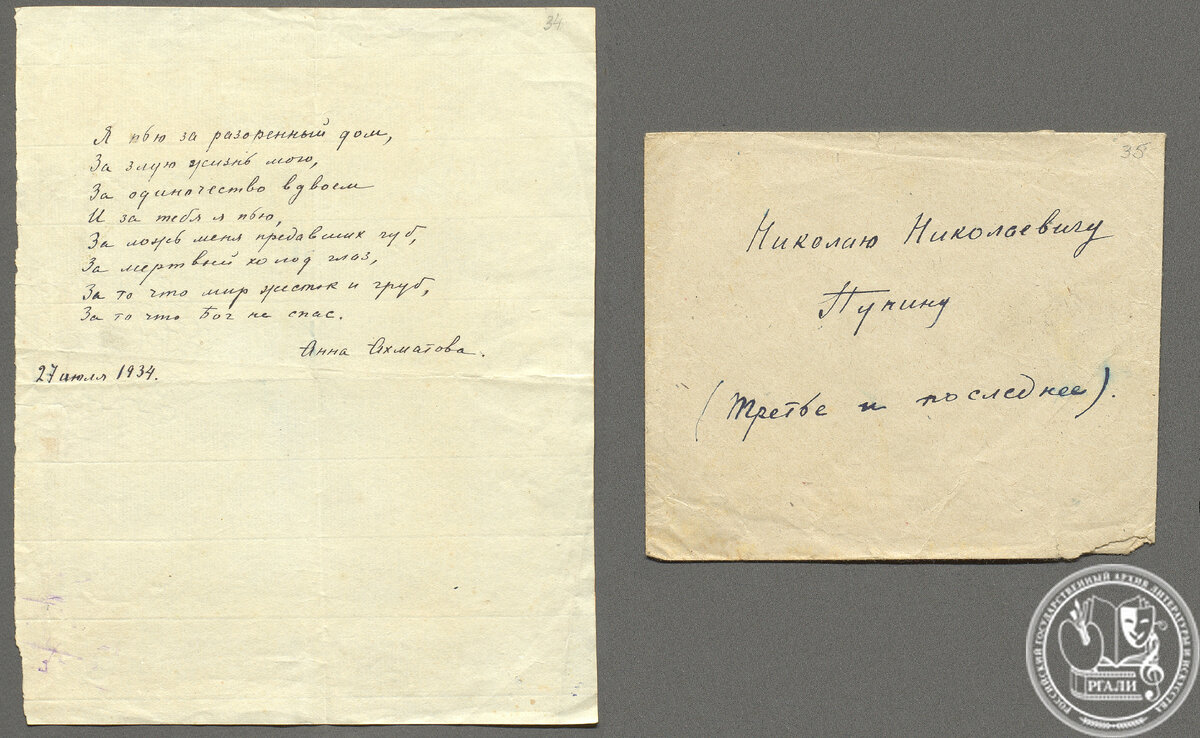 34
Я пью за разоренный дом,
За злую жизнь мою,
За одиночество вдвоем
И за тебя я пью,
За ложь меня предавших губ,
За мертвый холод глаз,
За то что мир жесток и груб,
За то что Бог не спас.
Анна Ахматова.
27 июля 1934.
35
Николаю Николаевичу
Пунину
(Третье и последнее).
РОССИЙСКИЙ ГОСУДАРСТВЕННЫЙ АРХИВ ЛИТЕРАТУРЫ И ИСКУССТВА
РГАЛИ